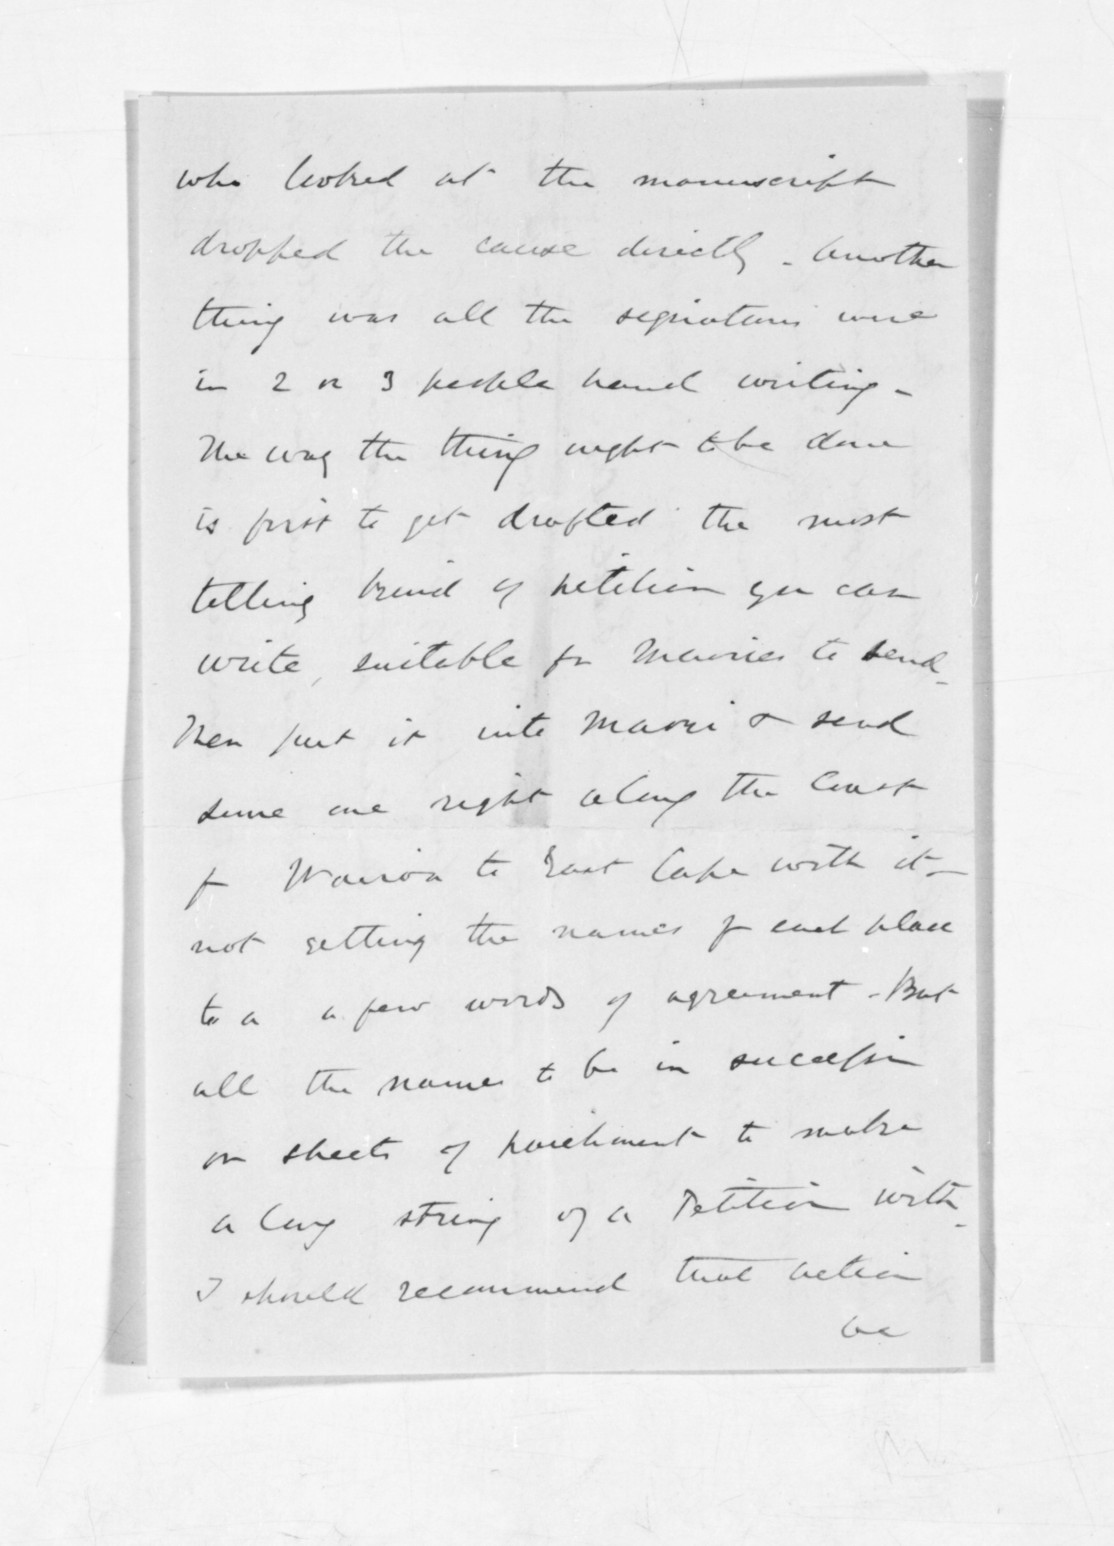 who looked at the manuscript
dropped the cause directly - Another
thing was all the signatures were
in 2 or 3 people hand writing -
The way the thing ought to be done
is first to get drafted the most
telling kind of petition you can
write, suitable for Maories to send -
Then put it into Maori & send
some one right along the Coast
fr Wairoa to East Cape with it -
not getting the names fr each place
to a a few words of agreement - But
all the names to be in succession
on sheets of parchment to make
a long string of a Petition with -
I should recommend that action
be